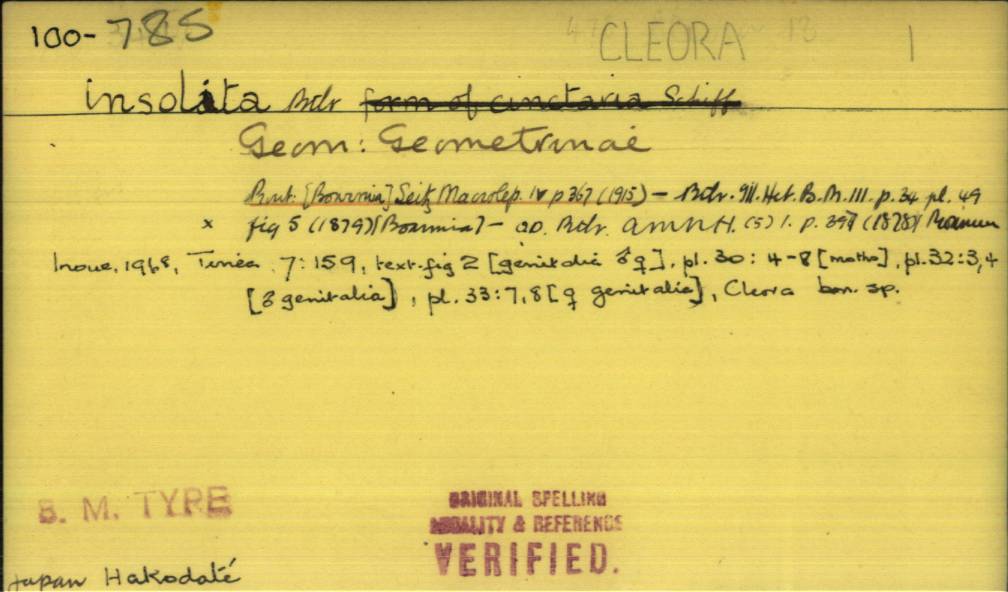 100-785 CLEORA 1
insolita Btlr form of cinctaria Schiff
Geom: Geometrinae
Prout. [Boarmia] Seitz Macrolep. IV p 367 (1915) — Btlr. Ill. Het. B.M. III. p. 34 pl. 49
x fig 5 (1879) [Boarmia] — OD. Btlr. AMNH. (5) 1. p. 397 (1878)
Inoue, 1968, Tinea 7: 159, text-fig 2 [genitalia ♂♀], pl. 30: 4-8 [moths], pl. 32: 3, 4
[♂ genitalia], pl. 33: 7, 8 [♀ genitalia], Cleora bon. sp.
B. M. TYPE
ORIGINAL SPELLING
LOCALITY & REFERENCE
VERIFIED.
Japan Hakodaté